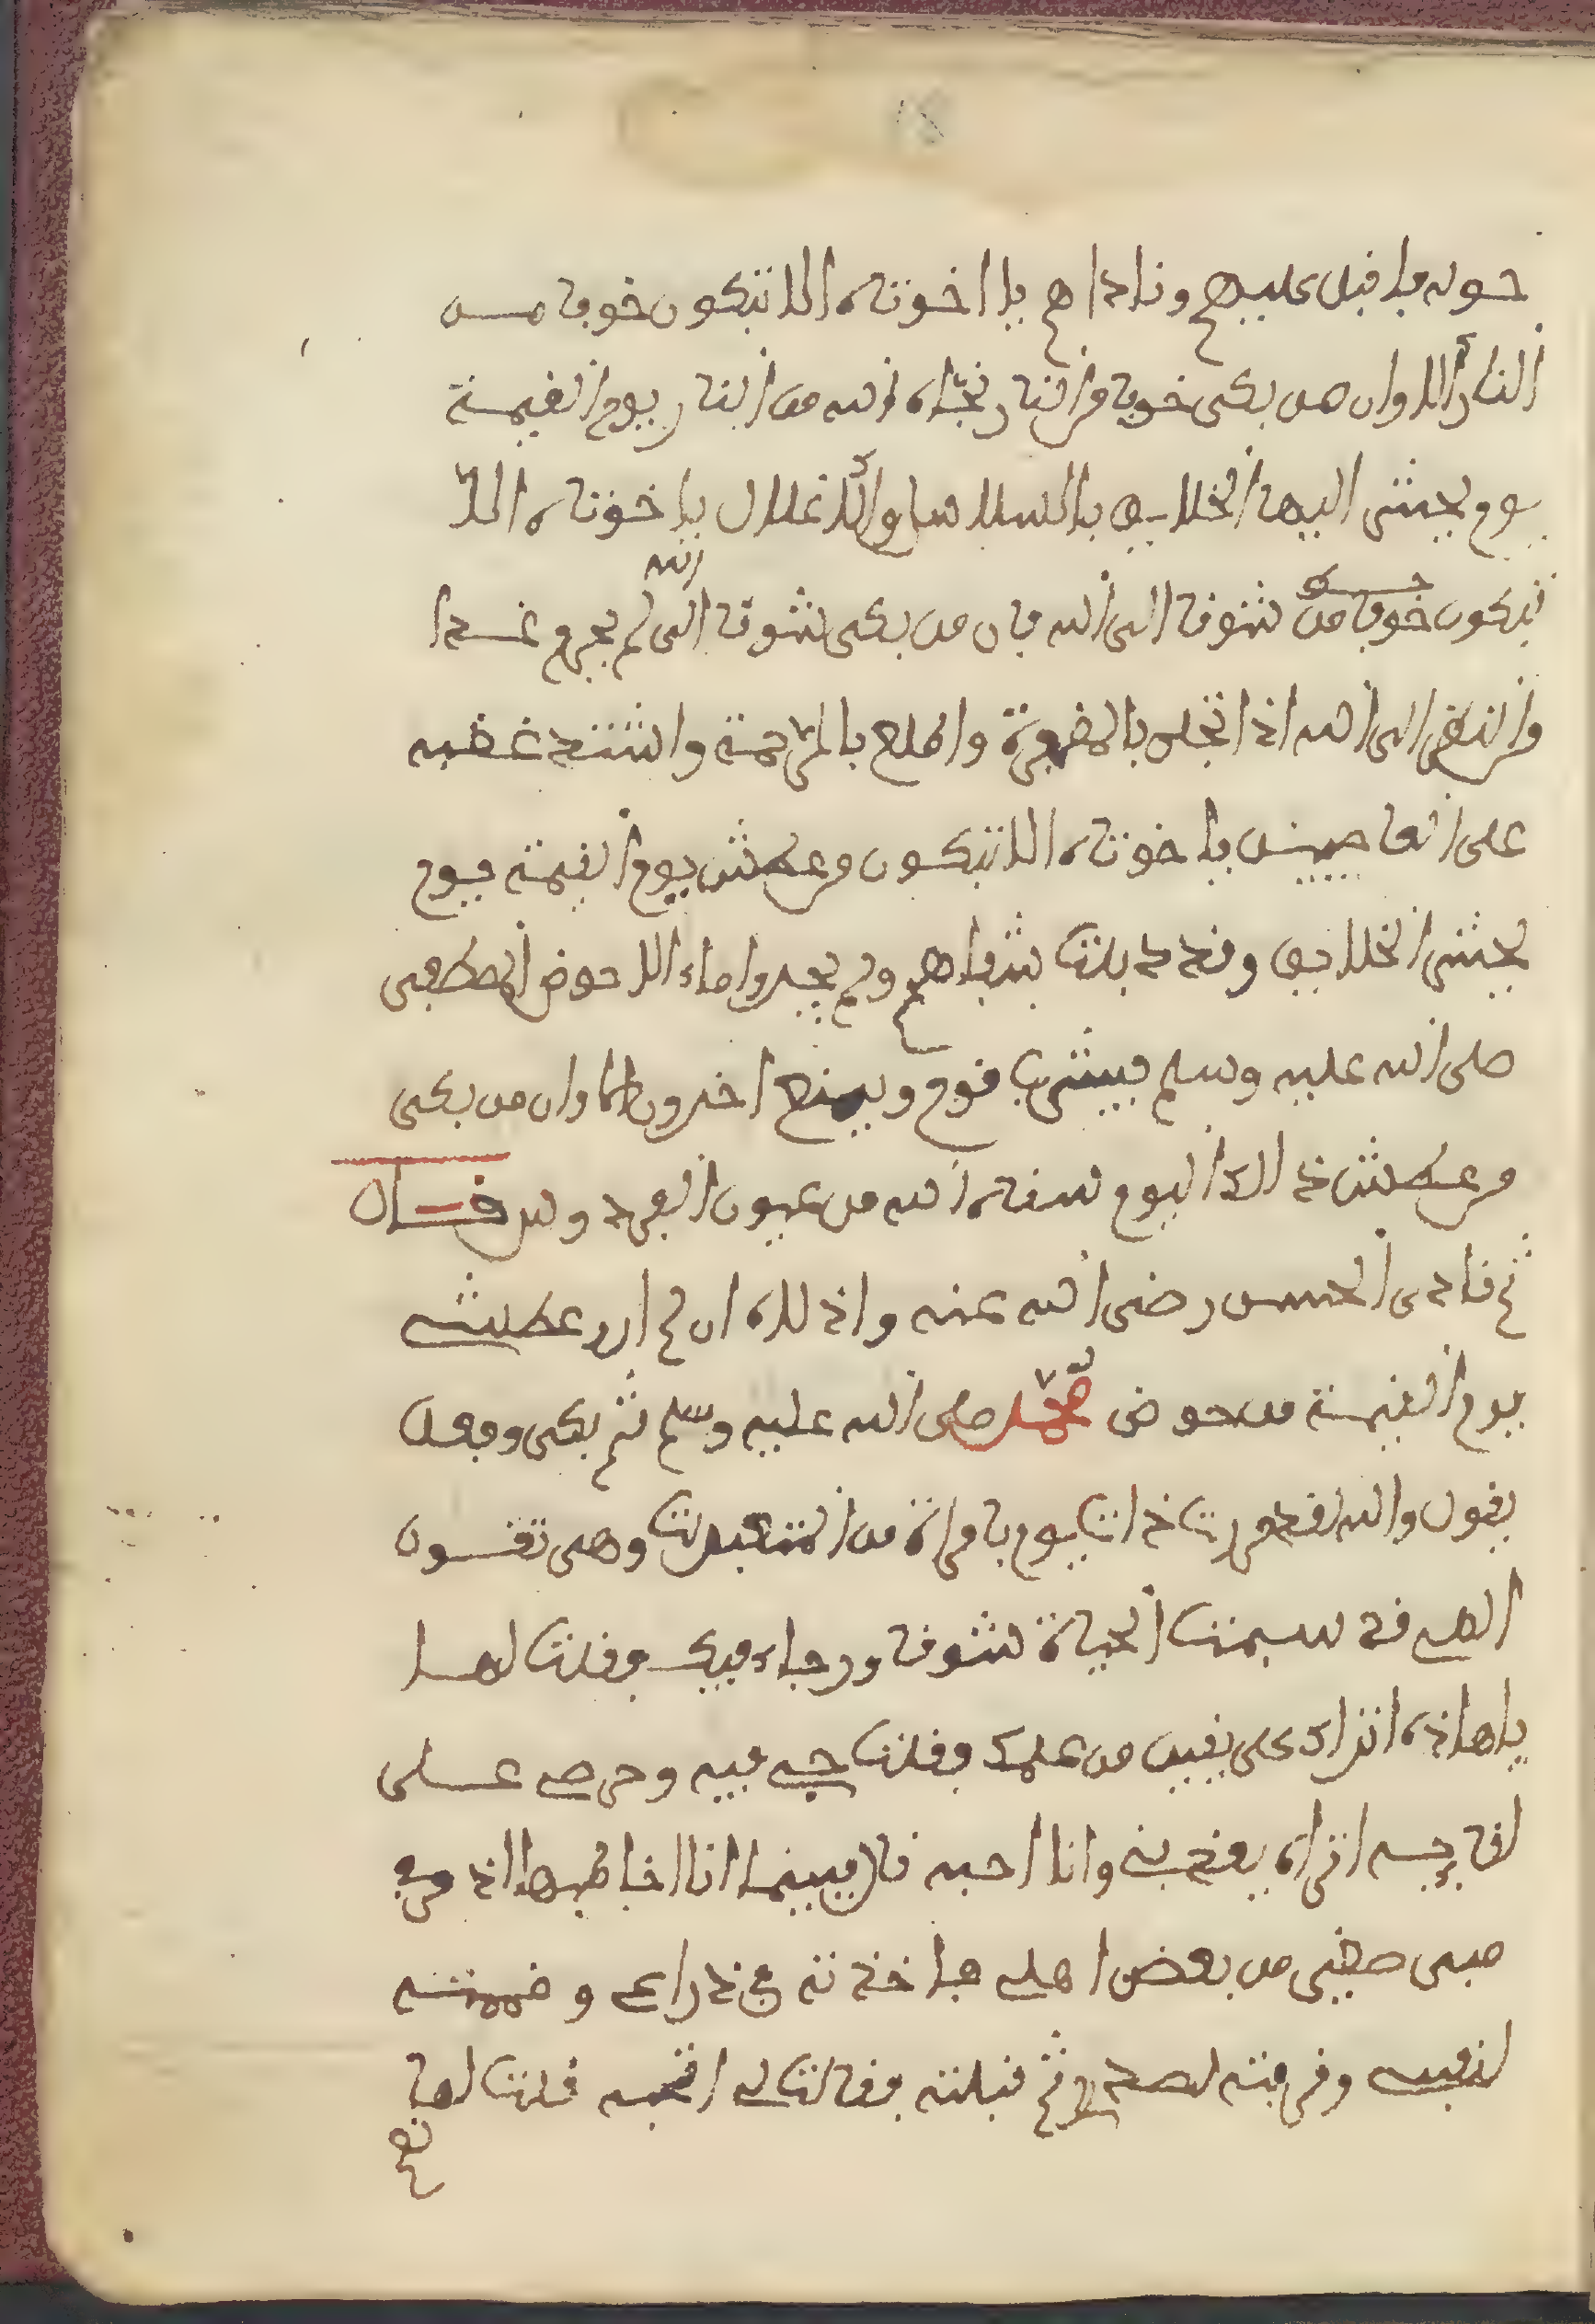 حوله فاقبل عليهم وناداهم يا اخوتاه الا تبكون خوفا مــن
النار الا وان من بكى خوفا من النار نجاه الله من النار يوم القيمة
يوم يحشر اليها الخلايق بالسلاسل والاغلال يا خوتاه الا
تبكون شوقا الى الله فان من بكى شوقا الى الله لم يحرم غــدا
من النظر الى الله اذا تجلى بالمغفرة واطلع بالرحمة واشتد غضبه
على العاصيين يا خوتاه الا تبكون من عطش يوم القيمة يوم
يحشر الخلايق وقد ذبلت شفاههم ولم يجدوا ماء الا حوض المصطفى
صلى الله عليه وسلم فيشرب قوم ويمنع اخرون الا وان من بكى
من عطش ذالك اليوم سقاه الله من عيون الفردوس قــال
ثم نادى الحسن رضى الله عنه واذلاه ان لم ارو عطشي
يوم القيمة من حوض محمد صلى الله عليه وسلم ثم بكى وجعل
يقول والله لقد مررت ذات يوم بامراة من المتعبدات وهى تقــول
الهي قد سيمت الحياة شوقا ورجاء فيك فقلت لهــا
يا هاذه اتراك على يقين من عملك فقلت حبي فيه وحرصي عــلى
لقايه اتراه يعذبني وانا احبه قال فبينما انا اخاطبها اذ مر بي
صبى صغير من بعض اهلي فاخذته في ذراعي وضممته
لنفسي وقربته لصدري ثم قبلته فقالت لي اتحبه قلت لها
نعم